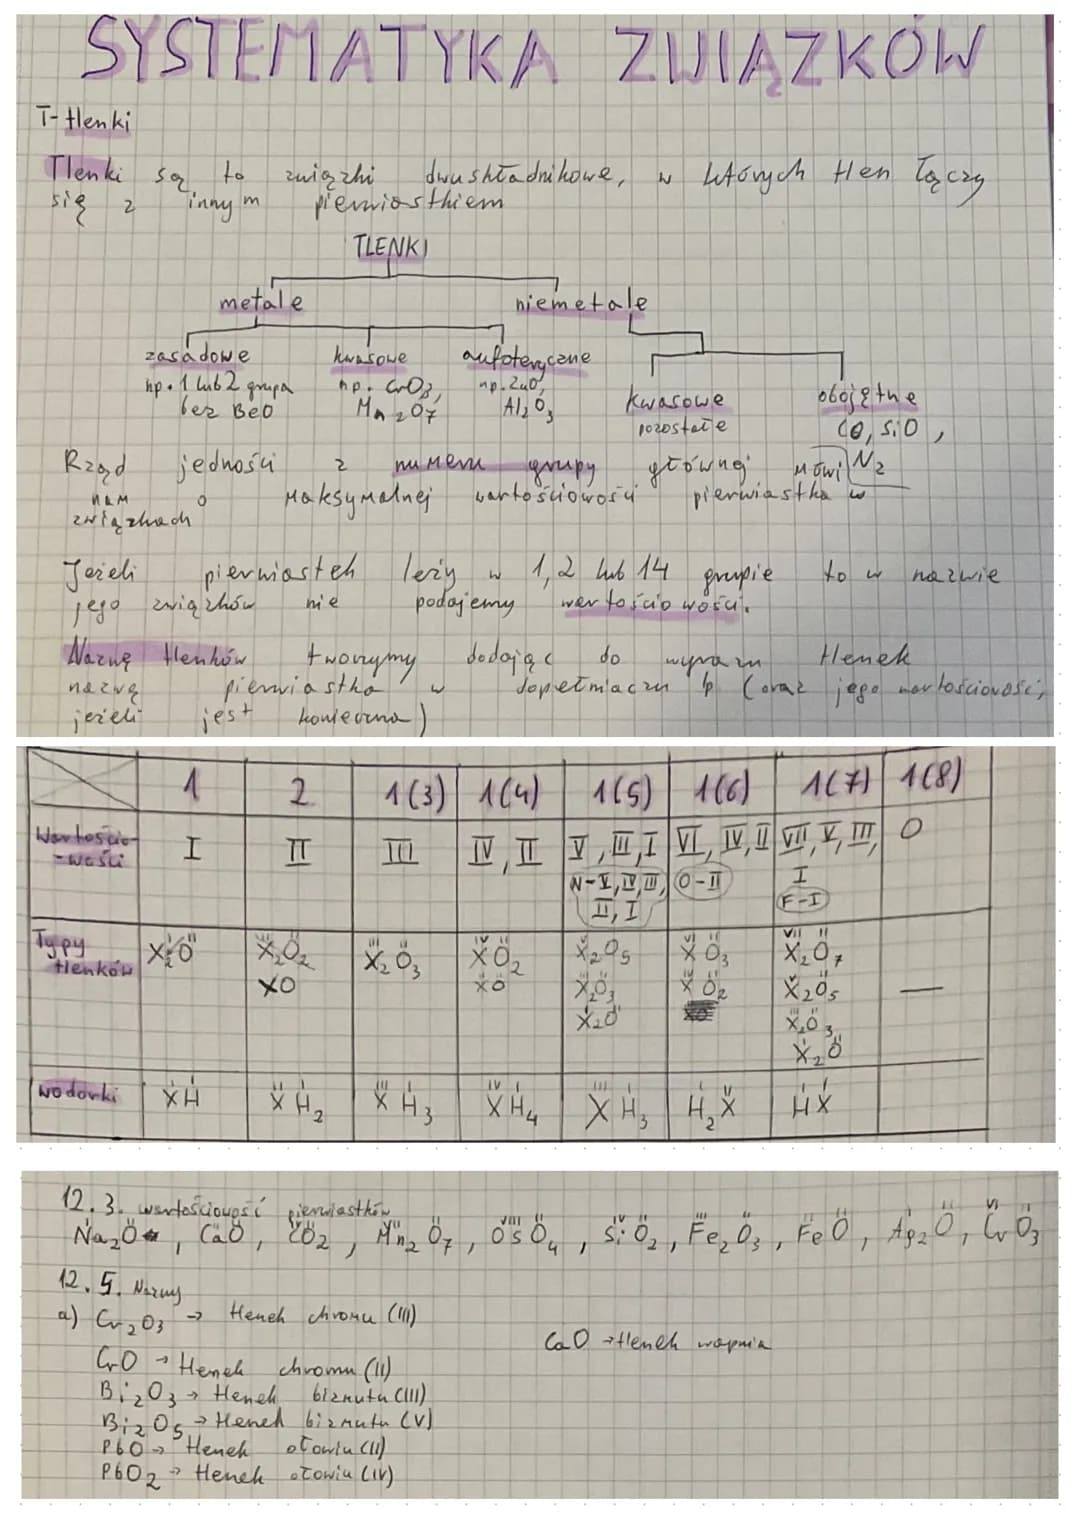 SYSTEMATYKA ZWIĄZKÓW
T-tlenki
Tlenki są to związki dwuskładnikowe, w których tlen łączy
się z innym pierwiastkiem
TLENKI
metale niemetale
zasadowe kwasowe amfoteryczne
np. 1 lub 2 grupa np. CrO₃, np. ZnO,
bez BeO Mn₂O₇ Al₂O₃
kwasowe obojętne
pozostałe CO, SiO,
Rząd jedności z numeru grupy głównej mówi N₂
nam o maksymalnej wartościowości pierwiastka w
związkach
Jeżeli pierwiastek leży w 1, 2 lub 14 grupie to w nazwie
jego związków nie podajemy wartościowości.
Nazwę tlenków tworzymy dodając do wyrazu tlenek
nazwę pierwiastka w dopełniaczu lp (oraz jego wartościowość,
jeżeli jest konieczna)
1 2 1(3) 1(4) 1(5) 1(6) 1(7) 1(8)
Wartościo- I II III IV, II V, III, I VI, IV, II VII, V, III, 0
-wości N-V, IV, III, O-II I
II, I F-I
Typy X₂O X₂O₂ X₂O₃ XO₂ X₂O₅ XO₃ X₂O₇ —
tlenków XO XO X₂O₃ XO₂ X₂O₅
X₂O X₂O₃
X₂O
wodorki XH XH₂ XH₃ XH₄ XH₃ H₂X HX
12.3. wartościowość pierwiastków
Na₂O, CaO, CO₂, Mn₂O₇, OsO₄, SiO₂, Fe₂O₃, FeO, Ag₂O, CrO₃
12.5. Nazwy
a) Cr₂O₃ → tlenek chromu (III)
CaO → tlenek wapnia
CrO → tlenek chromu (II)
Bi₂O₃ → tlenek bizmutu (III)
Bi₂O₅ → tlenek bizmutu (V)
PbO → tlenek ołowiu (II)
PbO₂ → tlenek ołowiu (IV)